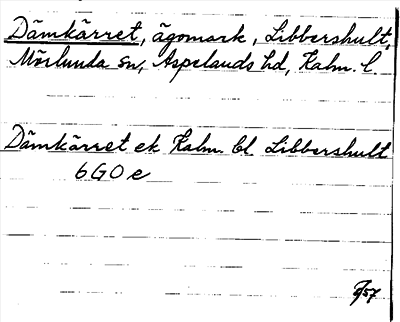 Dämkärret, ägomark, Libbershult,
Mörlunda sn, Aspelands hd, Kalm. l.
Dämkärret ek Kalm. bl Libbershult
6 G O e